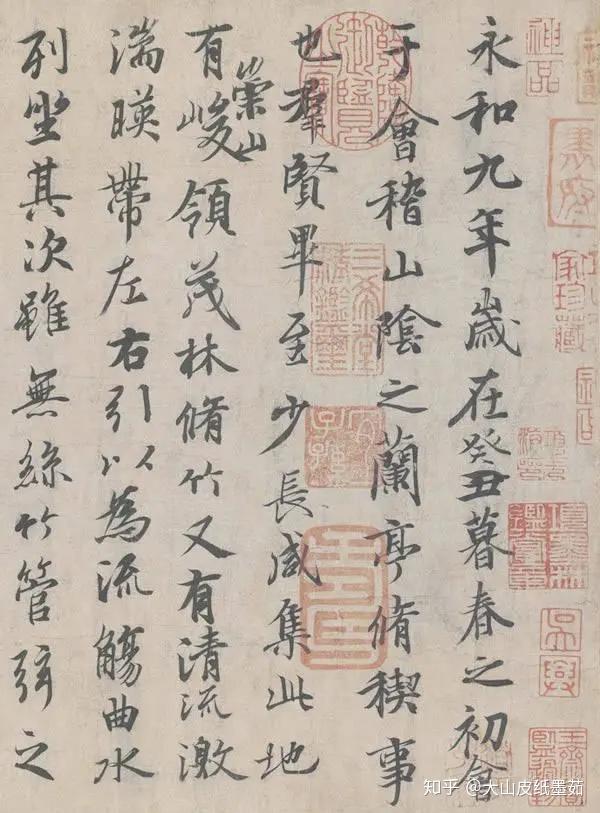 永和九年歲在癸丑暮春之初會
于會稽山陰之蘭亭脩稧事
也羣賢畢至少長咸集此地
有崇山峻領茂林脩竹又有清流激
湍暎帶左右引以為流觴曲水
列坐其次雖無絲竹管弦之
神品
三希堂精鑑璽
知乎 @大山皮纸墨茹